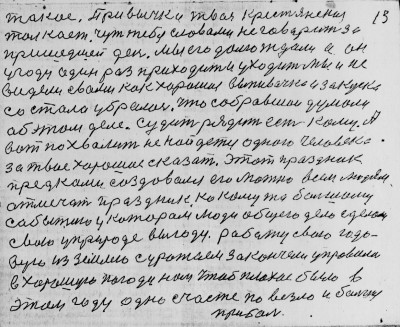 такое. Привычки твоя крестьянская
толкает. Чуть словами неговорит за
пришедшей ден. Мы его дожждали а он
у году один раз приходит и уходит мы и не
видем своими как хорошая выпивачка и закуска
со стола убрали. Что собравшаи думали
обэтом деле. Судит рядит ест кому. А
вот похвалит не найдетц одного человека
за твое хорошия сказат. Этот праздник
предками создавался его можно всем людям
отмечат праздник. Ко кому та большому
сабытию у котором люди общего дело сделали
свою у природе выгоду. Работу свою годо-
вую из землею сурожаем закончели управили
в харошую погоду нам плохое было в
этом году одно счасте повезло и больш
прибал.
13